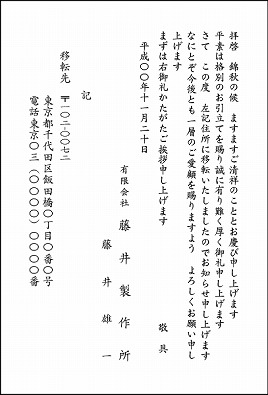 拝啓　錦秋の候　ますますご清祥のこととお慶び申し上げます
平素は格別のお引立てを賜り誠に有り難く厚く御礼申し上げます
さて　この度　左記住所に移転いたしましたのでお知らせ申し上げます
なにとぞ今後とも一層のご愛顧を賜りますよう　よろしくお願い申し
上げます
まずは右御礼かたがたご挨拶申し上げます
敬具
平成〇〇年十一月二十日
有限会社　藤井製作所
藤井雄一
記
移転先　〒一〇二-〇〇七二
東京都千代田区飯田橋〇丁目〇番〇号
電話東京〇三（〇〇〇〇）〇〇〇〇番